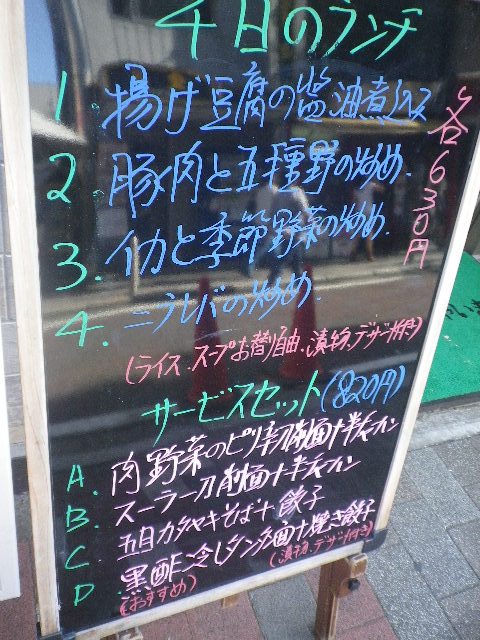 今日のランチ
各630円
1. 揚げ豆腐の醤油煮込み
2. 豚肉と五種野の炒め.
3. イカと季節野菜の炒め.
4. ニラレバの炒め.
(ライス、スープお替り自由、漬物、デザート付き)
サービスセット(820円)
A. 肉野菜のピリ辛刀削面+半チャーハン
B. スーラー刀削面+半チャーハン
C 五目カタヤキそば+餃子
D 黒酢冷しタンタン面+焼き餃子
(おすすめ)
(漬物、デザート付き)